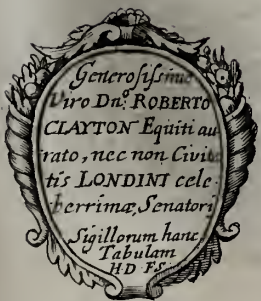 Generosissimo
Viro Dn.º ROBERTO
CLAYTON Equiti au
rato, nec non Civita
tis LONDINI cele
berrimæ, Senatori
Sigillorum hanc
Tabulam
H D FS